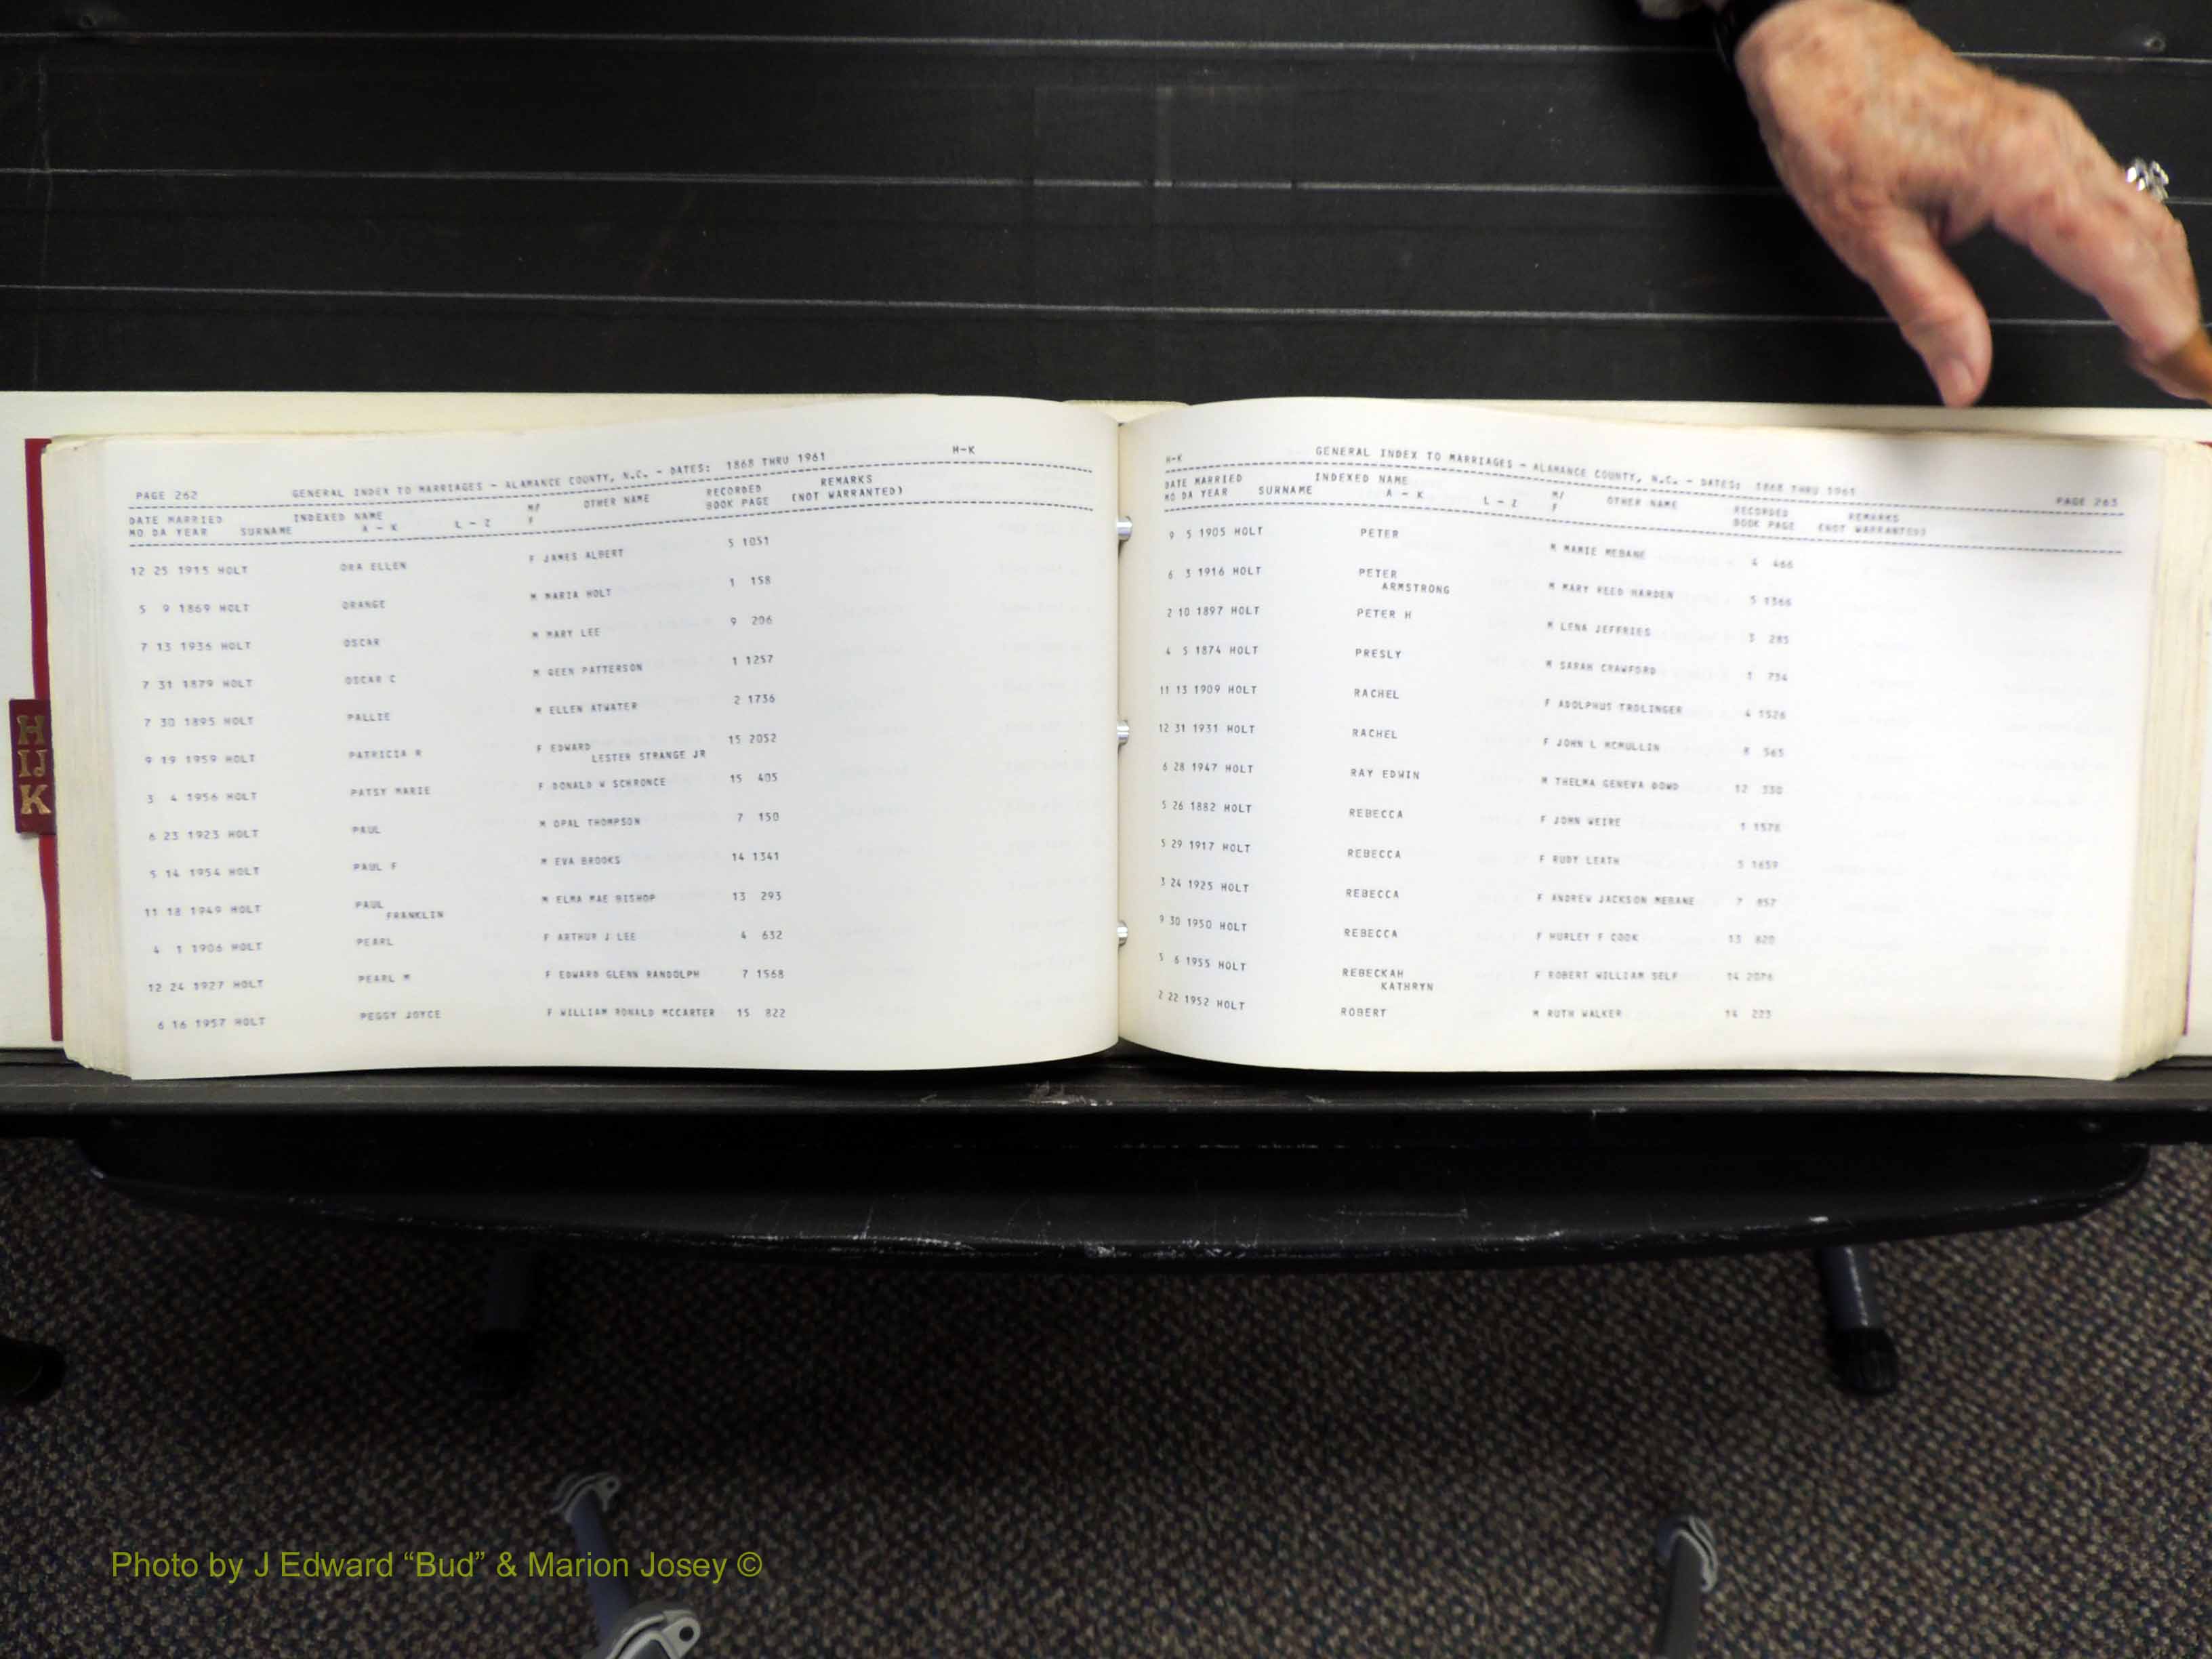 H
IJ
K
PAGE 262 GENERAL INDEX TO MARRIAGES - ALAMANCE COUNTY, N.C. - DATES: 1868 THRU 1961 H-K
DATE MARRIED INDEXED NAME M/ OTHER NAME RECORDED REMARKS
MO DA YEAR SURNAME A - K L - Z F BOOK PAGE (NOT WARRANTED)
12 25 1915 HOLT ORA ELLEN F JAMES ALBERT 5 1051
5 9 1869 HOLT ORANGE M MARIA HOLT 1 158
7 13 1936 HOLT OSCAR M MARY LEE 9 206
7 31 1879 HOLT OSCAR C M QEEN PATTERSON 1 1257
7 30 1895 HOLT PALLIE M ELLEN ATWATER 2 1736
9 19 1959 HOLT PATRICIA R F EDWARD 15 2052
LESTER STRANGE JR
3 4 1956 HOLT PATSY MARIE F DONALD W SCHRONCE 15 405
6 23 1923 HOLT PAUL M OPAL THOMPSON 7 150
5 14 1954 HOLT PAUL F M EVA BROOKS 14 1341
11 18 1949 HOLT PAUL M ELMA MAE BISHOP 13 293
FRANKLIN
4 1 1906 HOLT PEARL F ARTHUR J LEE 4 632
12 24 1927 HOLT PEARL M F EDWARD GLENN RANDOLPH 7 1568
6 16 1957 HOLT PEGGY JOYCE F WILLIAM RONALD MCCARTER 15 822
H-K GENERAL INDEX TO MARRIAGES - ALAMANCE COUNTY, N.C. - DATES: 1868 THRU 1961 PAGE 263
DATE MARRIED INDEXED NAME M/ OTHER NAME RECORDED REMARKS
MO DA YEAR SURNAME A - K L - Z F BOOK PAGE (NOT WARRANTED)
9 5 1905 HOLT PETER M MARIE MEBANE 4 466
6 3 1916 HOLT PETER M MARY REED HARDEN 5 1366
ARMSTRONG
2 10 1897 HOLT PETER H M LENA JEFFRIES 3 285
4 5 1874 HOLT PRESLY M SARAH CRAWFORD 1 734
11 13 1909 HOLT RACHEL F ADOLPHUS TROLINGER 4 1526
12 31 1931 HOLT RACHEL F JOHN L MCMULLIN 8 565
6 28 1947 HOLT RAY EDWIN M THELMA GENEVA DOWD 12 330
5 26 1882 HOLT REBECCA F JOHN WEIRE 1 1578
5 29 1917 HOLT REBECCA F RUDY LEATH 5 1659
3 24 1925 HOLT REBECCA F ANDREW JACKSON MEBANE 7 857
9 30 1950 HOLT REBECCA F HURLEY F COOK 13 820
5 6 1955 HOLT REBECKAH F ROBERT WILLIAM SELF 14
KATHRYN
2 22 1952 HOLT ROBERT M RUTH WALKER 14 223
Photo by J Edward “Bud” & Marion Josey ©